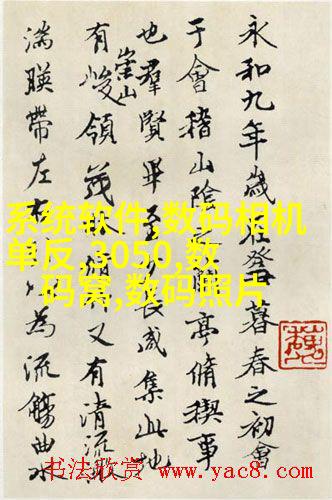 永和九年歲在癸暮春之初會
于會稽山陰之蘭亭脩稧事
也羣賢畢至少長咸集此地
有崇山峻領茂林脩竹又有清流激
湍暎帶左右以為流觴曲水
系统软件,数码相机
单反,3050,数
码窝,数码照片
书法欣赏 www.yac8.com